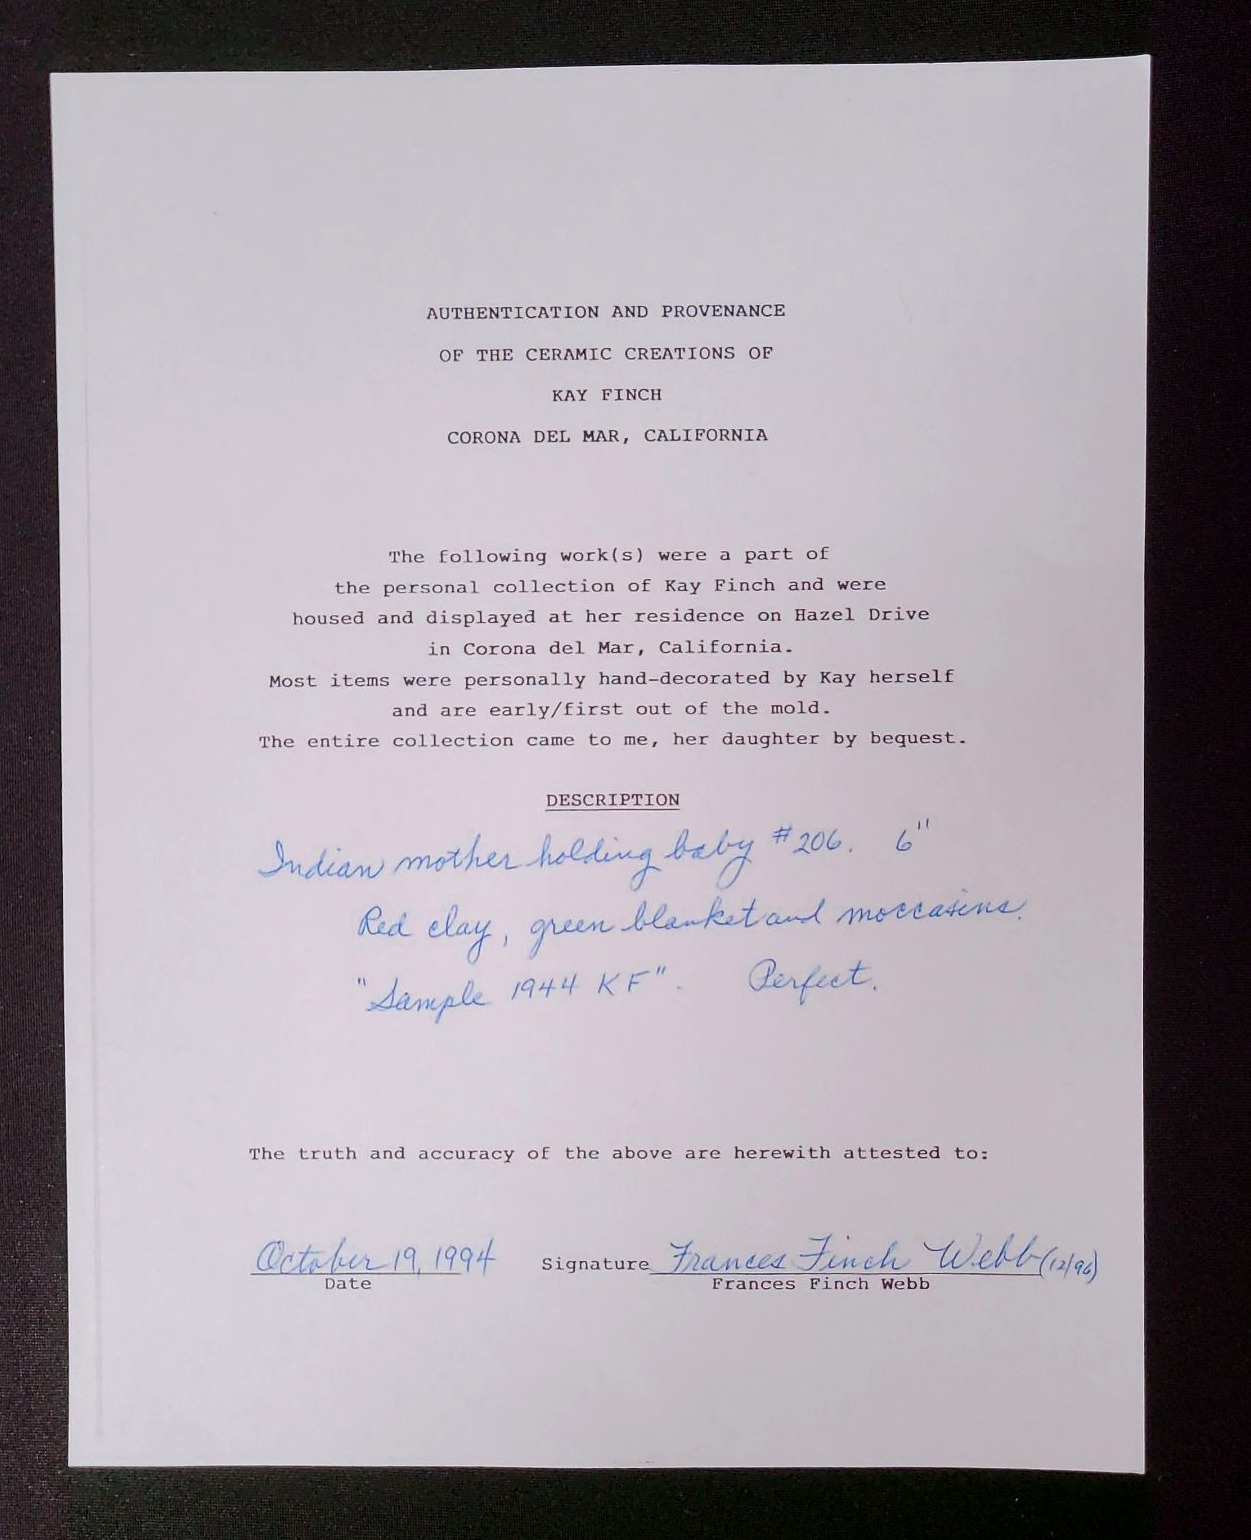 AUTHENTICATION AND PROVENANCE
OF THE CERAMIC CREATIONS OF
KAY FINCH
CORONA DEL MAR, CALIFORNIA
The following work(s) were a part of
the personal collection of Kay Finch and were
housed and displayed at her residence on Hazel Drive
in Corona del Mar, California.
Most items were personally hand-decorated by Kay herself
and are early/first out of the mold.
The entire collection came to me, her daughter by bequest.
DESCRIPTION
Indian mother holding baby #206. 6"
Red clay, green blanket and moccasins.
"Sample 1944 KF". Perfect.
The truth and accuracy of the above are herewith attested to:
October 19, 1994 Signature Frances Finch Webb (12/96)
Date Frances Finch Webb